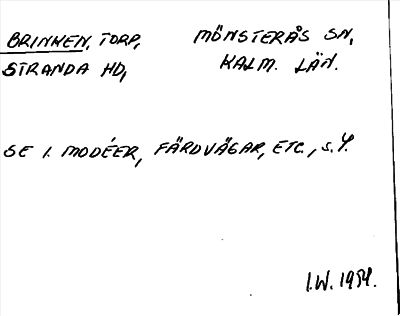 BRINKEN, TORP, MÖNSTERÅS SN,
STRANDA HD, KALM. LÄN.
SE I. MODÉER, FÄRDVÄGAR, ETC., s. 4.
I.W. 1954.